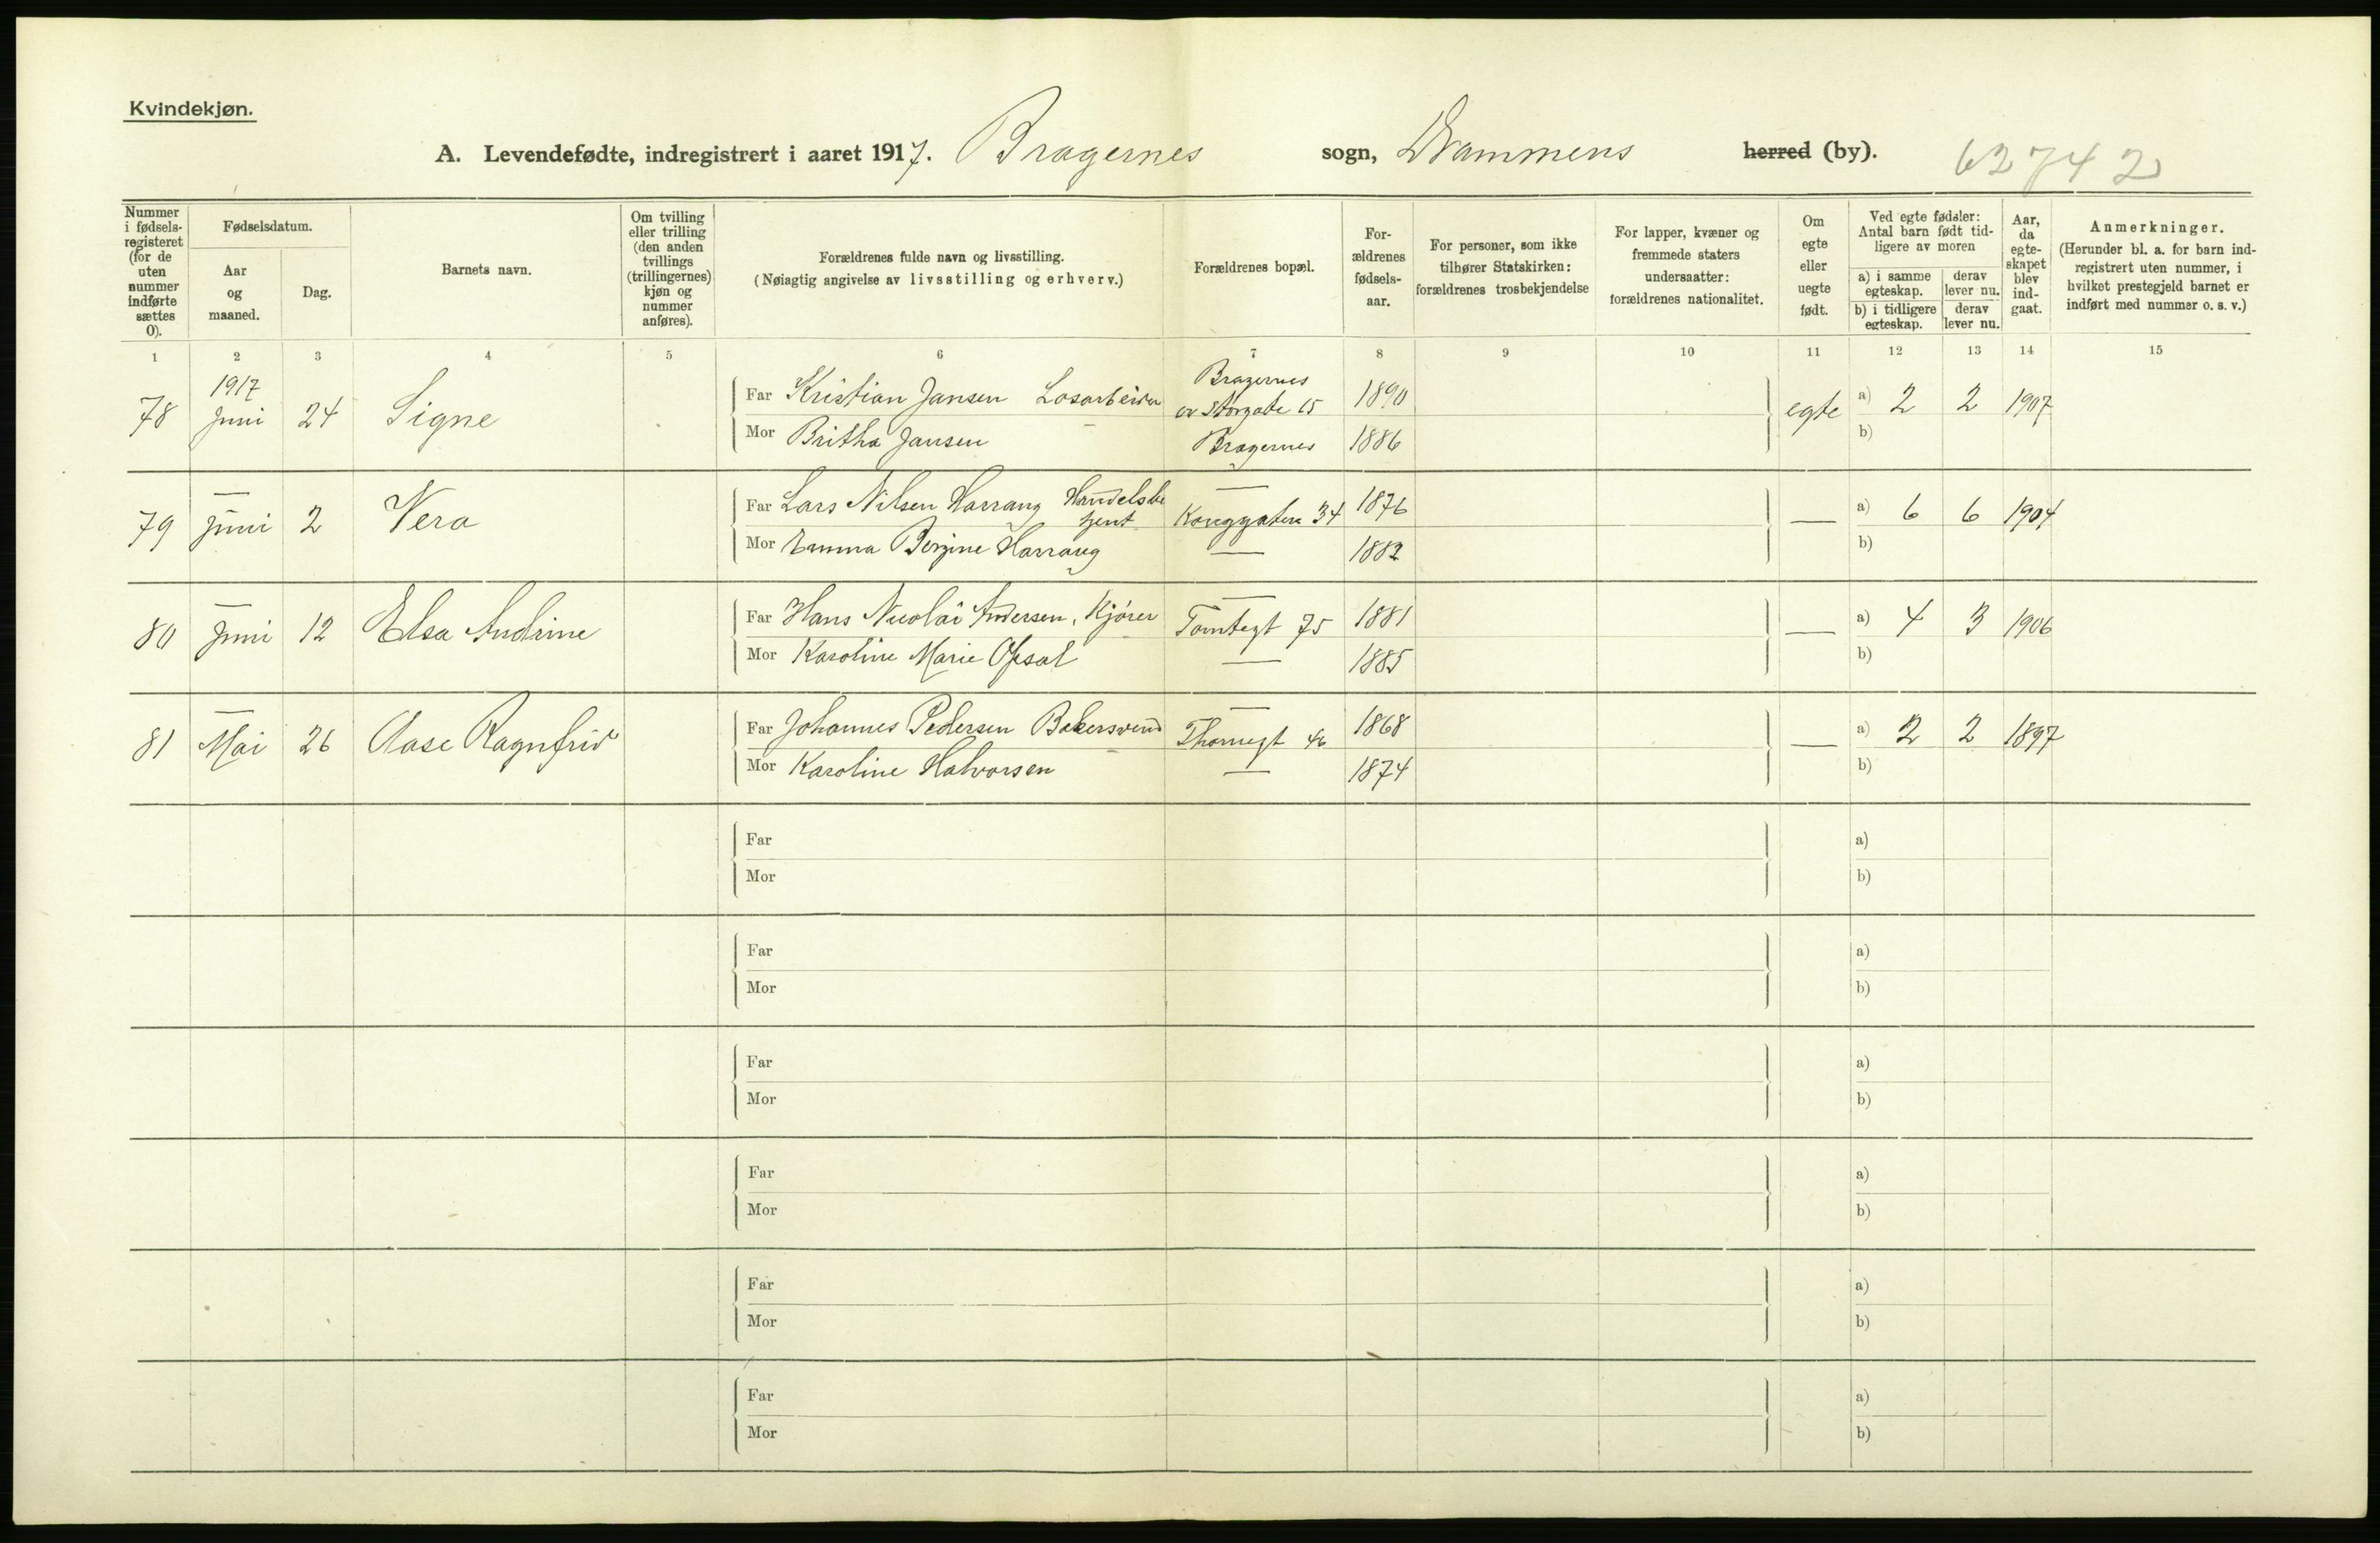 Kvindekjøn.
A. Levendefødte, indregistrert i aaret 1917. Bragernes sogn, Drammens herred (by). 62742
Nummer i fødsels-registeret (for de uten nummer indførte sættes 0).
Fødselsdatum.
Aar og maaned.
Dag.
Barnets navn.
Om tvilling eller trilling (den anden tvillings (trillingernes) kjøn og nummer anføres).
Forældrenes fulde navn og livsstilling.
(Nøiagtig angivelse av livsstilling og erhverv.)
Forældrenes bopæl.
For-ældrenes fødsels-aar.
For personer, som ikke tilhører Statskirken: forældrenes trosbekjendelse
For lapper, kvæner og fremmede staters undersaatter: forældrenes nationalitet.
Om egte eller uegte født.
Ved egte fødsler: Antal barn født tid-ligere av moren
a) i samme egteskap.
derav lever nu.
b) i tidligere egteskap.
derav lever nu.
Aar, da egte-skapet blev ind-gaat.
Anmerkninger.
(Herunder bl. a. for barn ind-registrert uten nummer, i hvilket prestegjeld barnet er indført med nummer o. s. v.)
1 2 3 4 5 6 7 8 9 10 11 12 13 14 15
78 1917 Juni 24 Signe
Far Kristian Jansen Losarbeider Bragernes öv Storgate 15 1890 egte a) 2 2 1907
Mor Britha Jansen Bragernes 1886 b)
79 — Juni 2 Vera
Far Lars Nilsen Harrang Handelsbetjent — Konggaten 34 1876 — a) 6 6 1904
Mor Emma Bergine Harrang — 1882 b)
80 — Juni 12 Elsa Andrine
Far Hans Nicolai Andersen, Kjører — Tomtegt 75 1881 — a) 4 3 1906
Mor Karoline Marie Opsal — 1885 b)
81 — Mai 26 Aase Ragnfrid
Far Johannes Pedersen Bakersvend — Thornegt 46 1868 — a) 2 2 1897
Mor Karoline Halvorsen — 1874 b)
Far a)
Mor b)
Far a)
Mor b)
Far a)
Mor b)
Far a)
Mor b)
Far a)
Mor b)
Far a)
Mor b)